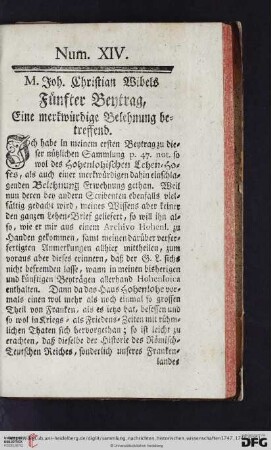 Num. XIV.
M. Joh. Christian Wibels
Fünfter Beytrag,
Eine merkwürdige Belehnung be-
treffend.
Ich habe in meinem ersten Beytrag zu die-
ser nützlichen Sammlung p. 47. not. so
wol des Hohenlohischen Lehen-Ho-
fes, als auch einer merkwürdigen dahin einschla-
genden Belehnung Erwehnung gethan. Weil
nun deren bey andern Scribenten ebenfalls viel-
fältig gedacht wird, meines Wissens aber keiner
den ganzen Lehen-Brief geliefert, so will ihn al-
so, wie er mir aus einem Archivo Hohenl. zu
Handen gekommen, samt meinen darüber verfer-
tigten Anmerkungen allhier mittheilen, zum
voraus aber dieses erinnern, daß der G. L. sichs
nicht befremden lasse, wann in meinen bisherigen
und künftigen Beyträgen allerhand Hohenloica
enthalten. Dann da das Haus Hohenlohe vor-
mals einen wol mehr als noch einmal so grossen
Theil von Franken, als es itzo hat, besessen und
so wol in Kriegs- als Friedens-Zeiten mit rühm-
lichen Thaten sich hervorgethan; so ist leicht zu
erachten, daß dieselbe der Historie des Römisch-
Teutschen Reiches, sonderlich unsers Franken-
landes
© Universitätsbibliothek Heidelberg
DFG